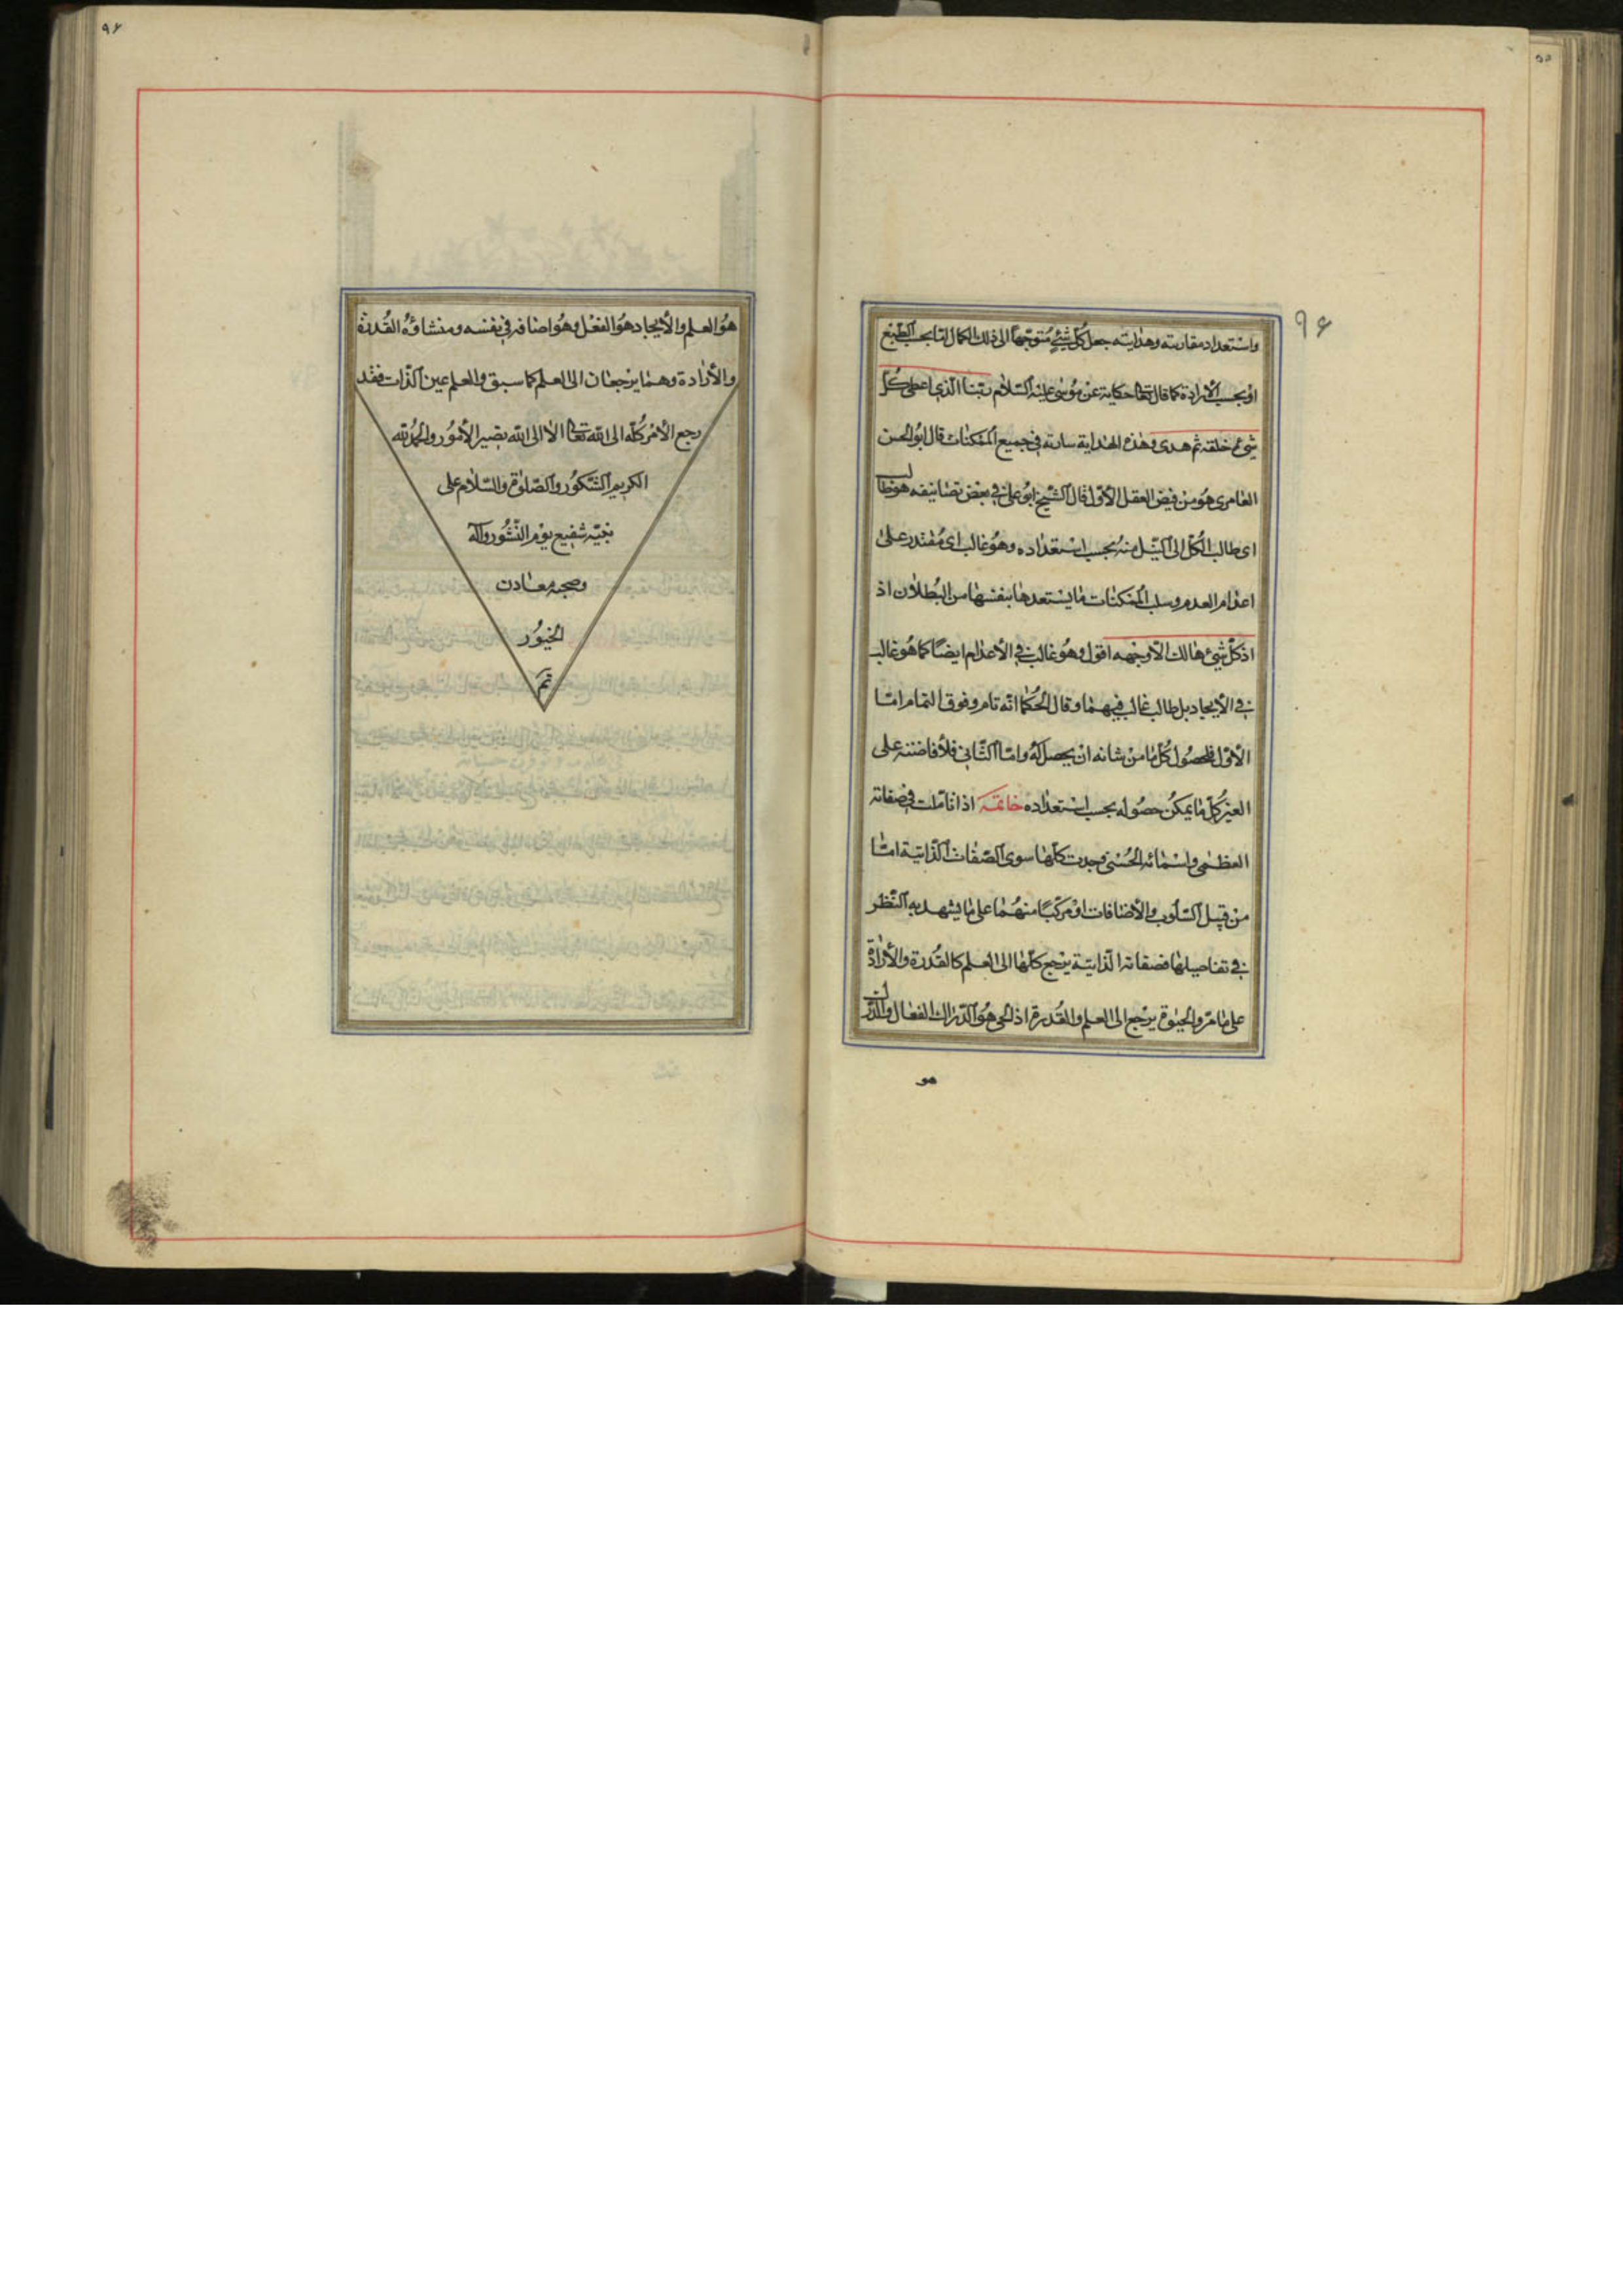 ٩۶
واستعداد مقارنته وهدايته جعل كل شئ متوجها الى ذلك الكمال اما بحسب الطبع
او بحسب الارادة كما قال تعالى حكاية عن موسى عليه السلام ربنا الذى اعطى كل
شئ خلقه ثم هدى وهذه الهداية سارية فى جميع الممكنات قال ابو الحسن
العامرى هو من فيض العقل الاول قال الشيخ ابو على فى بعض تصانيفه هو طالب
اى طالب الكل الى النيل منه بحسب استعداده وهو غالب اى مقتدر على
اعدام العدم وسلب الممكنات ما يستعدها بنفسها من البطلان اذ
اذ كل شئ هالك الا وجهه اقول وهو غالب فى الأعدام ايضا كما هو غالب
فى الأيجاد بل طالب غالب فيهما وقال الحكما انه تام وفوق التمام امّا
الأول فلحصول كل ما من شانه ان يحصل له وامّا الثانى فلأفاضته على
الغير كل ما يمكن حصوله بحسب استعداده خاتمه اذا تأملت فى صفاته
العظمى واسمائه الحسنى وجدت كلها سوى الصفات الذاتية امّا
من قبيل السلوب والأضافات او مركبا منهما على ما يشهد به النظر
فى تفاصيلها فصفاته الذاتية يرجع كلها الى العلم كالقدرة والأرادة
على ما مرّ والحيوة يرجع الى العلم والقدرة اذ الحى هو الدرّاك الفعال والدرك
هو
٩۶
هو العلم والأيجاد هو الفعل وهو اضافه فى نفسه ومنشاؤه القدرة
والأرادة وهما يرجعان الى العلم كما سبق والعلم عين الذات فقد
رجع الأمر كله الى الله تعالى الا الى الله تصير الأمور والحمد لله
الكريم الشكور والصلوة والسلام على
نبيّه شفيع يوم النشور وآله
وصحبه معادن
الخيور
تم